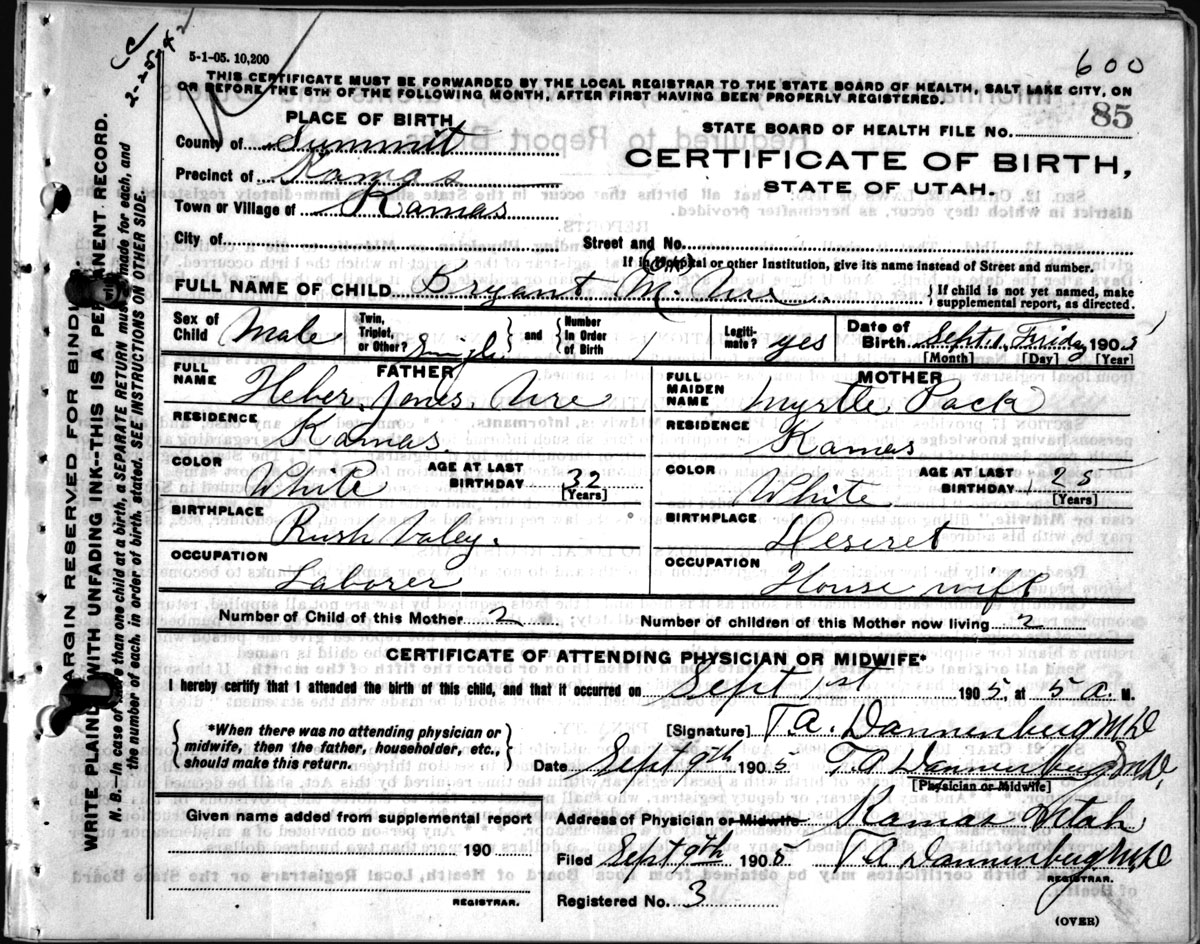 cc
2-25-42
5-1-05. 10,200
600
THIS CERTIFICATE MUST BE FORWARDED BY THE LOCAL REGISTRAR TO THE STATE BOARD OF HEALTH, SALT LAKE CITY, ON
OR BEFORE THE 5TH OF THE FOLLOWING MONTH, AFTER FIRST HAVING BEEN PROPERLY REGISTERED.
PLACE OF BIRTH
STATE BOARD OF HEALTH FILE NO. 85
County of Summit
CERTIFICATE OF BIRTH,
Precinct of Kamas
STATE OF UTAH.
Town or Village of Kamas
City of
Street and No.
If in Hospital or other Institution, give its name instead of Street and number.
FULL NAME OF CHILD Bryant
If child is not yet named, make
supplemental report, as directed.
Sex of Child Male
Twin, Triplet, or Other? Single
and
Number In Order of Birth 1
Legitimate? yes
Date of Birth Sept. 1, Friday 1905
[Month] [Day] [Year]
FATHER
FULL NAME Heber Jones
RESIDENCE Kamas
COLOR White
AGE AT LAST BIRTHDAY 32
[Years]
BIRTHPLACE Rush Valey.
OCCUPATION Laborer
MOTHER
FULL MAIDEN NAME Myrtle Pack
RESIDENCE Kamas
COLOR White
AGE AT LAST BIRTHDAY
[Years]
BIRTHPLACE Deseret
OCCUPATION House wife
Number of Child of this Mother 2
Number of children of this Mother now living 2
CERTIFICATE OF ATTENDING PHYSICIAN OR MIDWIFE*
I hereby certify that I attended the birth of this child, and that it occurred on Sept 1st 1905, at 5 a. M.
*When there was no attending physician or
midwife, then the father, householder, etc.,
should make this return.
[Signature] T.A. Dannenberg M.D.
Date Sept 9th 1905 T A Dannenberg M.D.
[Physician or Midwife]
Given name added from supplemental report
190
REGISTRAR.
Address of Physician or Midwife Kamas Utah
Filed Sept 9th 1905 T A Dannenberg M.D.
REGISTRAR.
Registered No. 3
(OVER)
MARGIN RESERVED FOR BINDING.
WRITE PLAINLY WITH UNFADING INK--THIS IS A PERMANENT RECORD.
N. B.--In case of more than one child at a birth, a SEPARATE RETURN must be made for each, and
the number of each, in order of birth, stated. SEE INSTRUCTIONS ON OTHER SIDE.